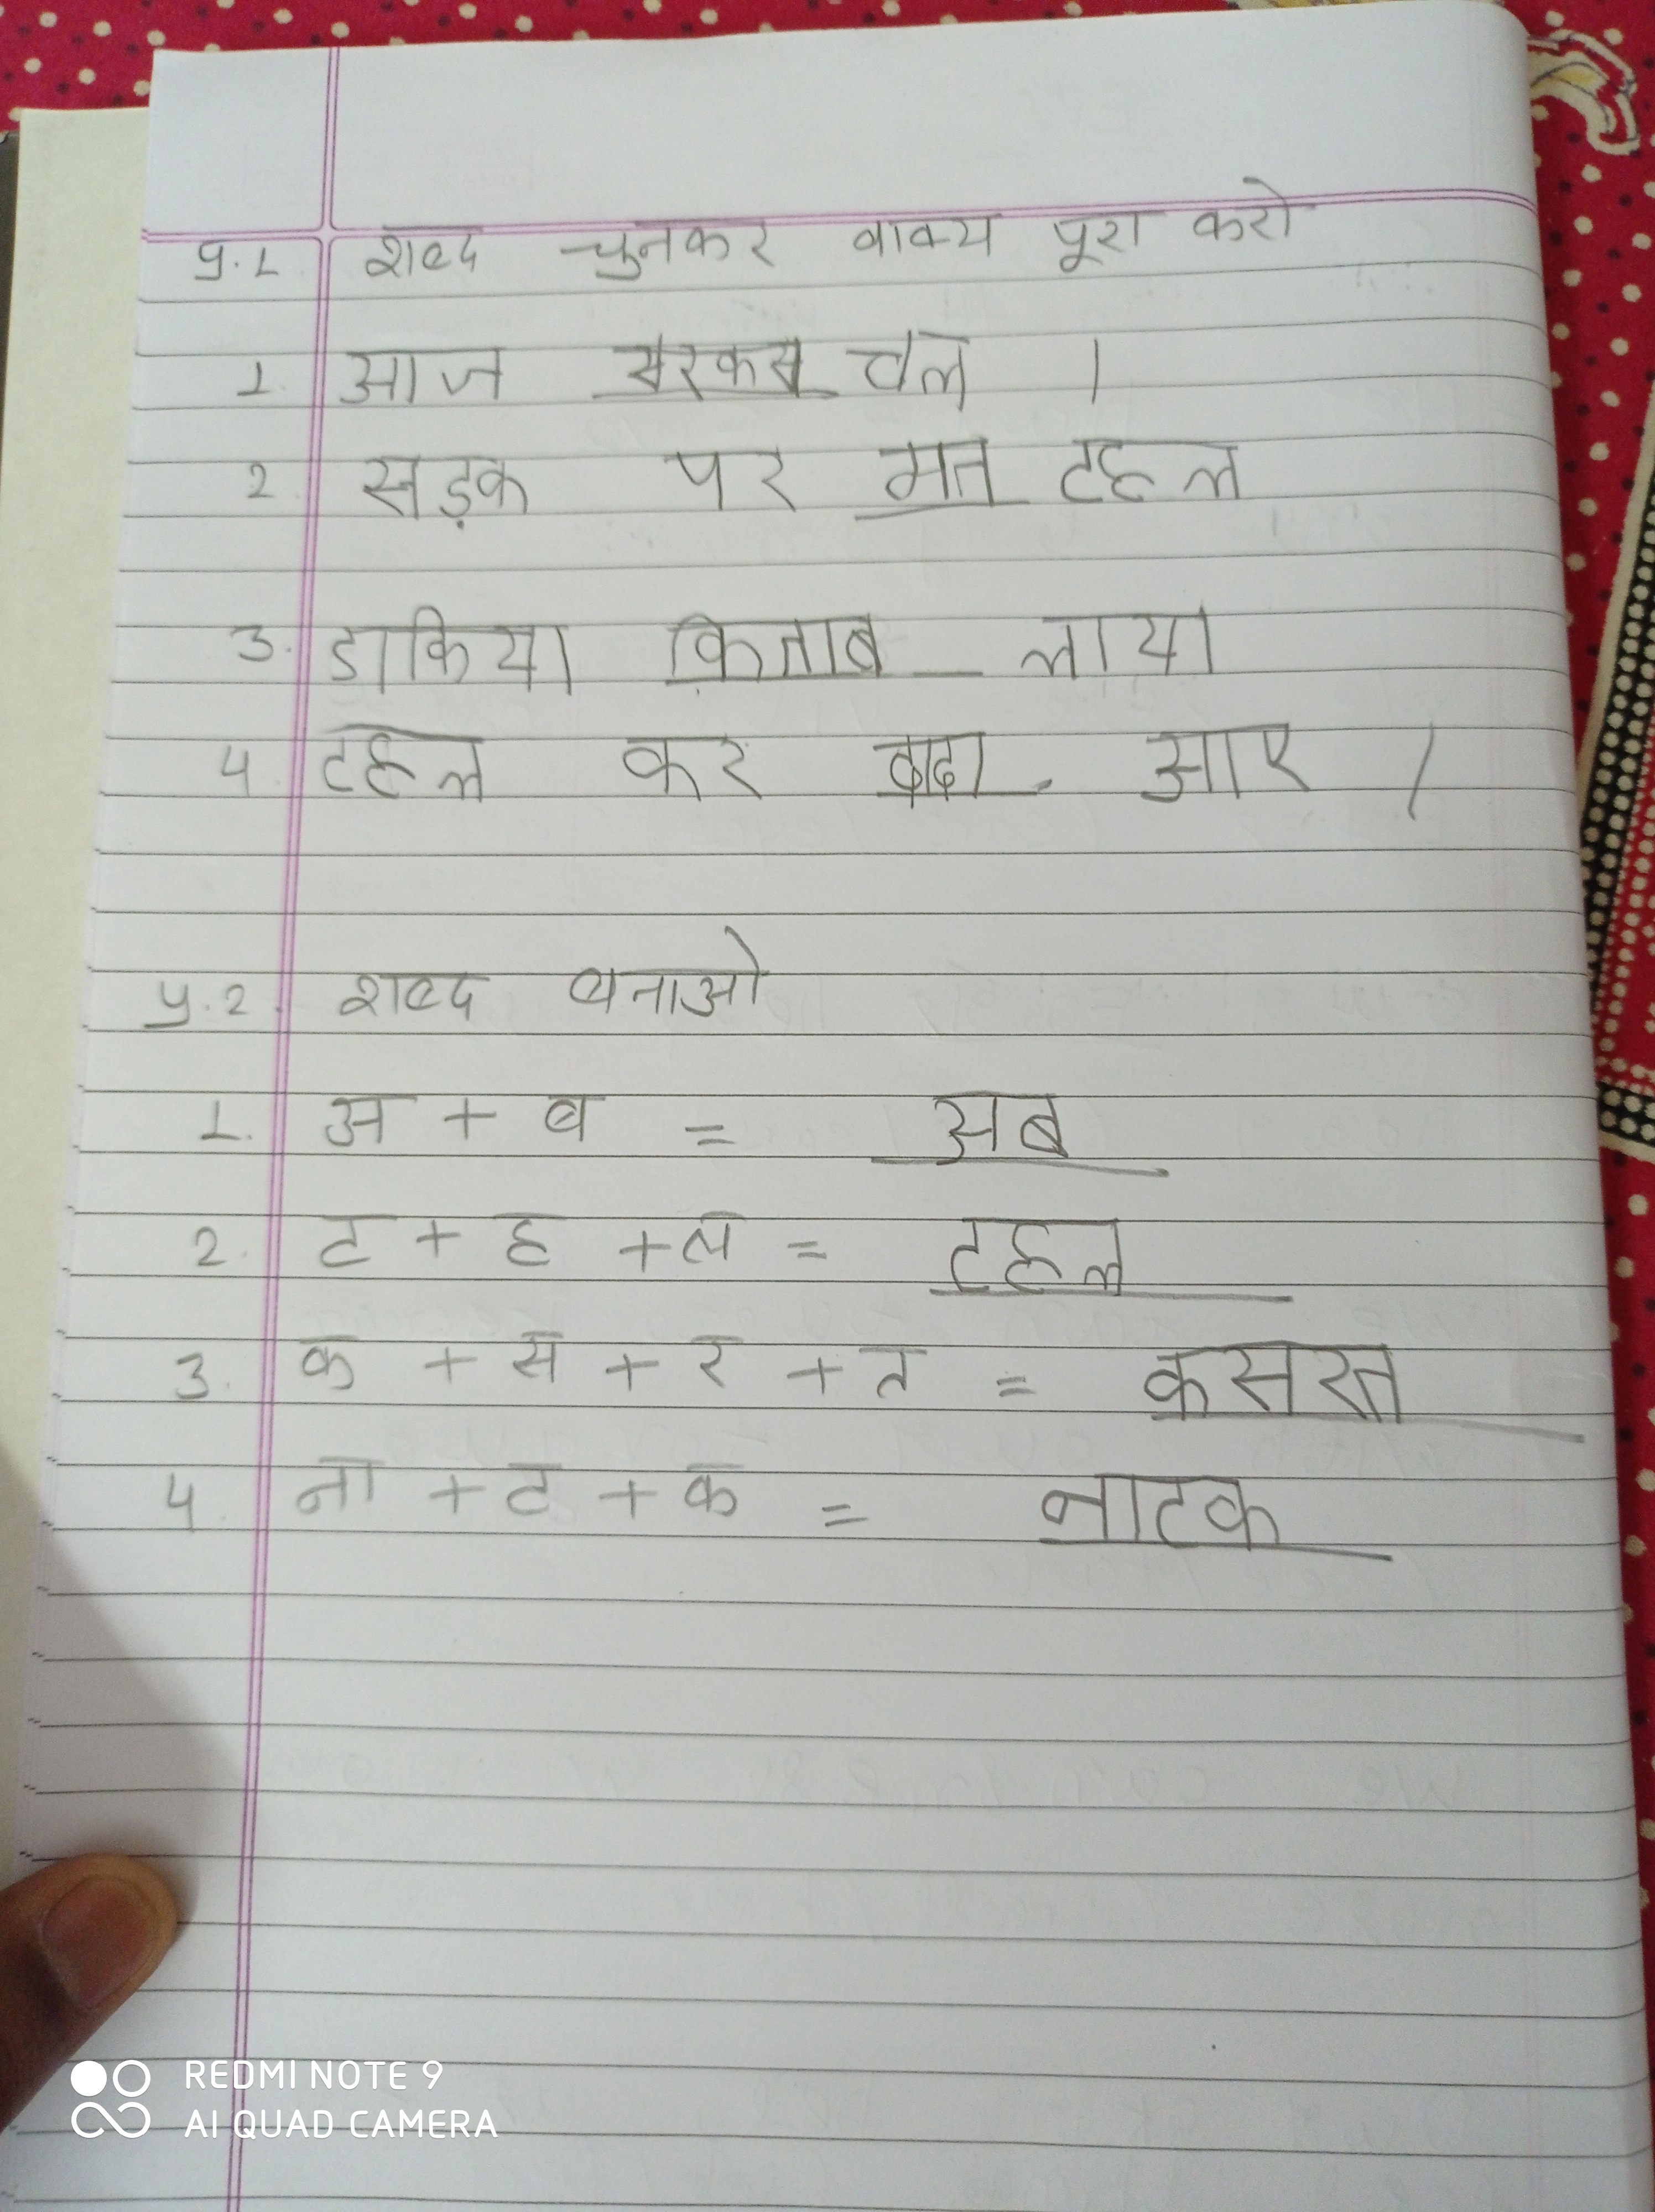 प्र.1 शब्द चुनकर वाक्य पूरा करो
1. आज सरकस चल ।
2. सड़क पर मत टहल
3. डाकिया किताब लाया
4 टहल कर दादा आए ।
प्र.2 शब्द बनाओ
1. अ + ब = अब
2. ट + ह + ल = टहल
3. क + स + र + त = कसरत
4 ना + ट + क = नाटक
REDMI NOTE 9
AI QUAD CAMERA